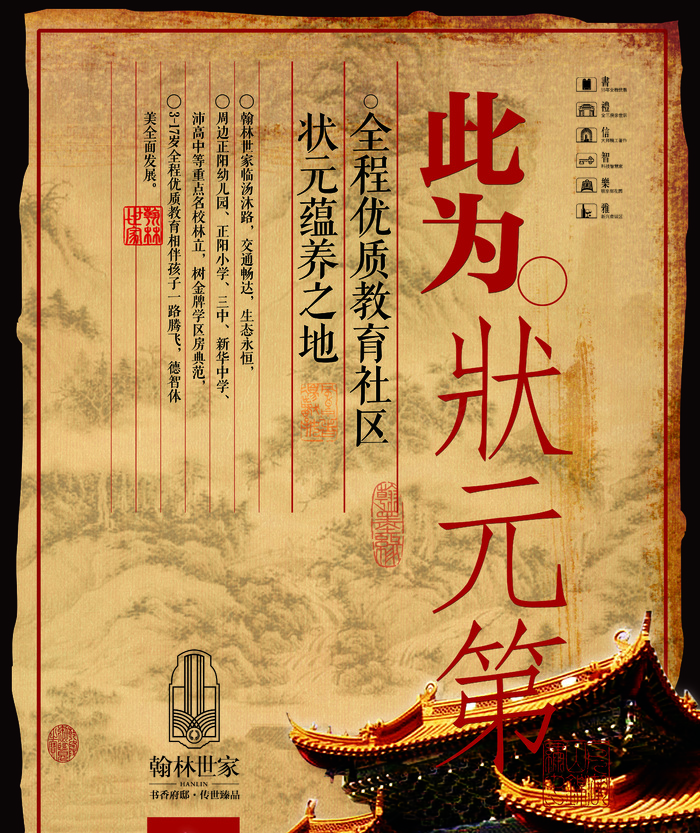 此为
狀元第
全程优质教育社区
状元蕴养之地
翰林世家临汤沐路，交通畅达，生态永恒，
周边正阳幼儿园、正阳小学、三中、新华中学、
沛高中等重点名校林立，树金牌学区房典范，
3-17岁全程优质教育相伴孩子一路腾飞，德智体
美全面发展。
翰林
世家
書
禮
信
智
樂
雅
翰林世家
HANLIN
书香府邸·传世臻品